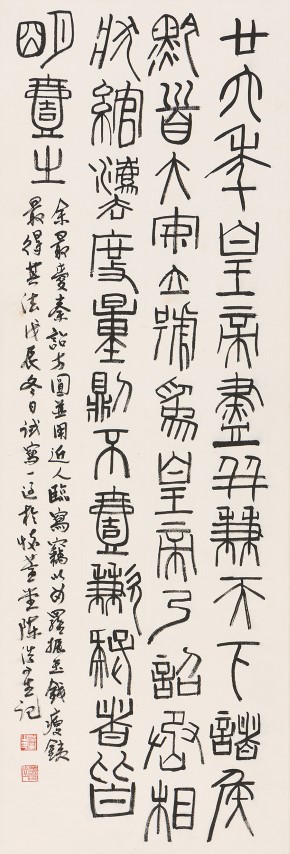 廿六年皇帝盡并兼天下諸侯
黔首大安立號為皇帝乃詔丞相
狀綰灋度量則不壹歉疑者皆
明壹之
余最愛秦詔方圓並用近人臨寫竊以為羅振玉錢瘦鐵
最得其法戊辰冬日試寫一過於萱堂陳浩記